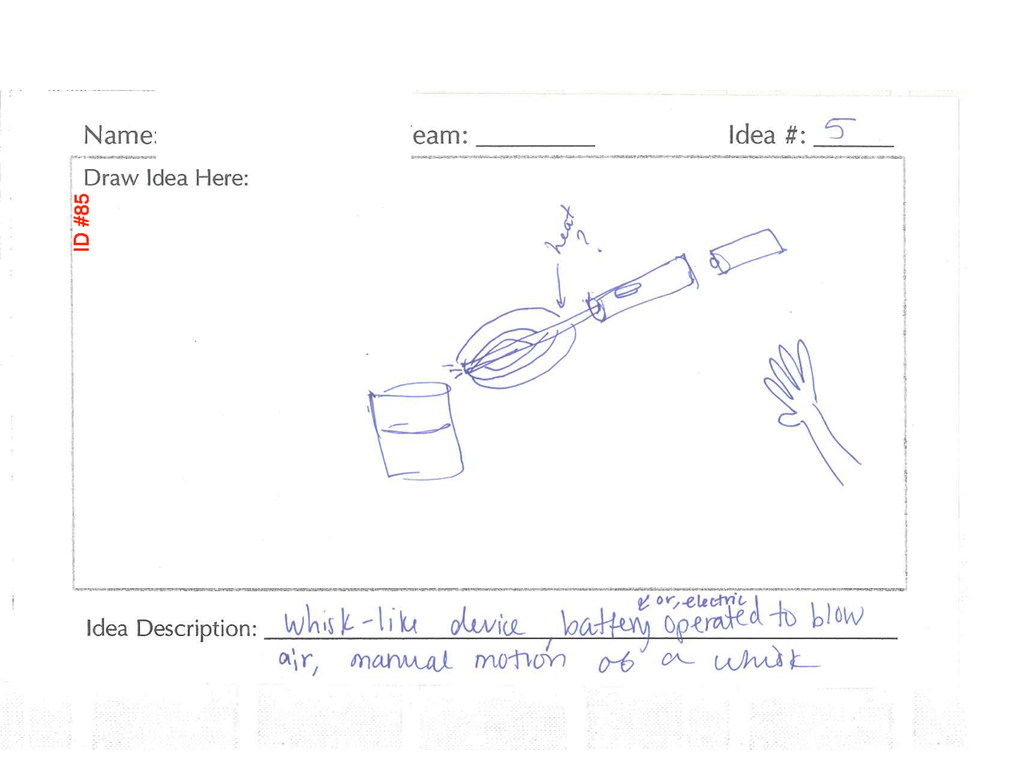 Name: eam: Idea #: 5
Draw Idea Here:
ID #85
heat
?
or, electric
Idea Description: whisk-like device battery operated to blow
air, manual motion of a whisk